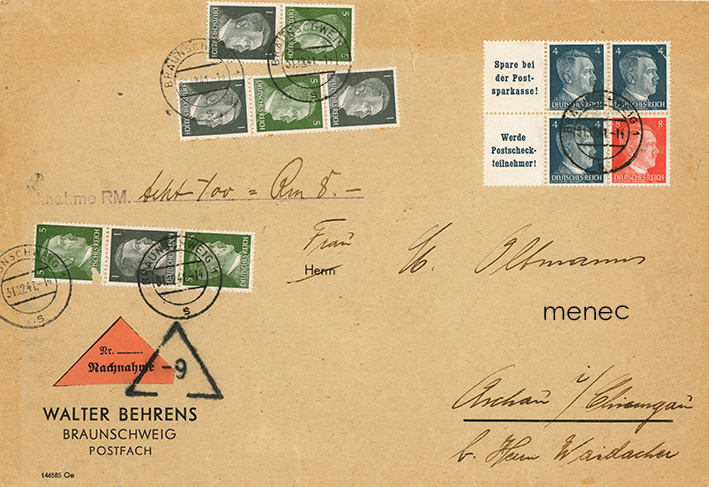 DEUTSCHES REICH 1
DEUTSCHES REICH 5
BRAUNSCHWEIG
DEUTSCHES REICH 1
DEUTSCHES REICH 5
DEUTSCHES REICH 1
Spare bei
der Post-
sparkasse!
4 DEUTSCHES REICH
4 DEUTSCHES REICH
Werde
Postscheck-
teilnehmer!
4 DEUTSCHES REICH
8 DEUTSCHES REICH
nahme RM. Acht 8/00 = Rm 8.-
DEUTSCHES REICH 5
DEUTSCHES REICH 1
DEUTSCHES REICH 5
BRAUNSCHWEIG
31.12.41.-14
s
BRAUNSCHWEIG 1
31.12.41.-14
s
Frau
Herrn
Oltmanns
menec
Nr.
Nachnahme
-9
WALTER BEHRENS
BRAUNSCHWEIG
POSTFACH
146585 Oe
Aschau i/Chiemgau
b. Herrn Waidacher